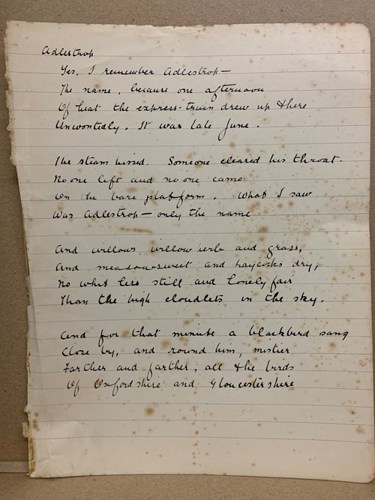 Adlestrop
Yes, I remember Adlestrop—
The name, because one afternoon
Of heat the express-train drew up there
Unwontedly. It was late June.
The steam hissed. Someone cleared his throat.
No one left and no one came
On the bare platform. What I saw
Was Adlestrop—only the name
And willows, willow-herb and grass,
And meadowsweet, and haycocks dry,
No whit less still and lonely fair
Than the high cloudlets in the sky.
And for that minute a blackbird sang
Close by, and round him, mistier,
Farther and farther, all the birds
Of Oxfordshire and Gloucestershire